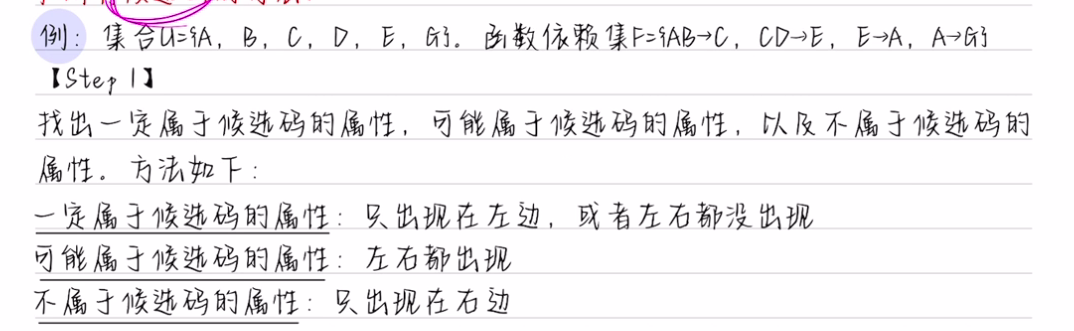 例：集合U={A，B，C，D，E，G}。函数依赖集F={AB→C，CD→E，E→A，A→G}
【Step 1】
找出一定属于候选码的属性，可能属于候选码的属性，以及不属于候选码的
属性。方法如下：
一定属于候选码的属性：只出现在左边，或者左右都没出现
可能属于候选码的属性：左右都出现
不属于候选码的属性：只出现在右边